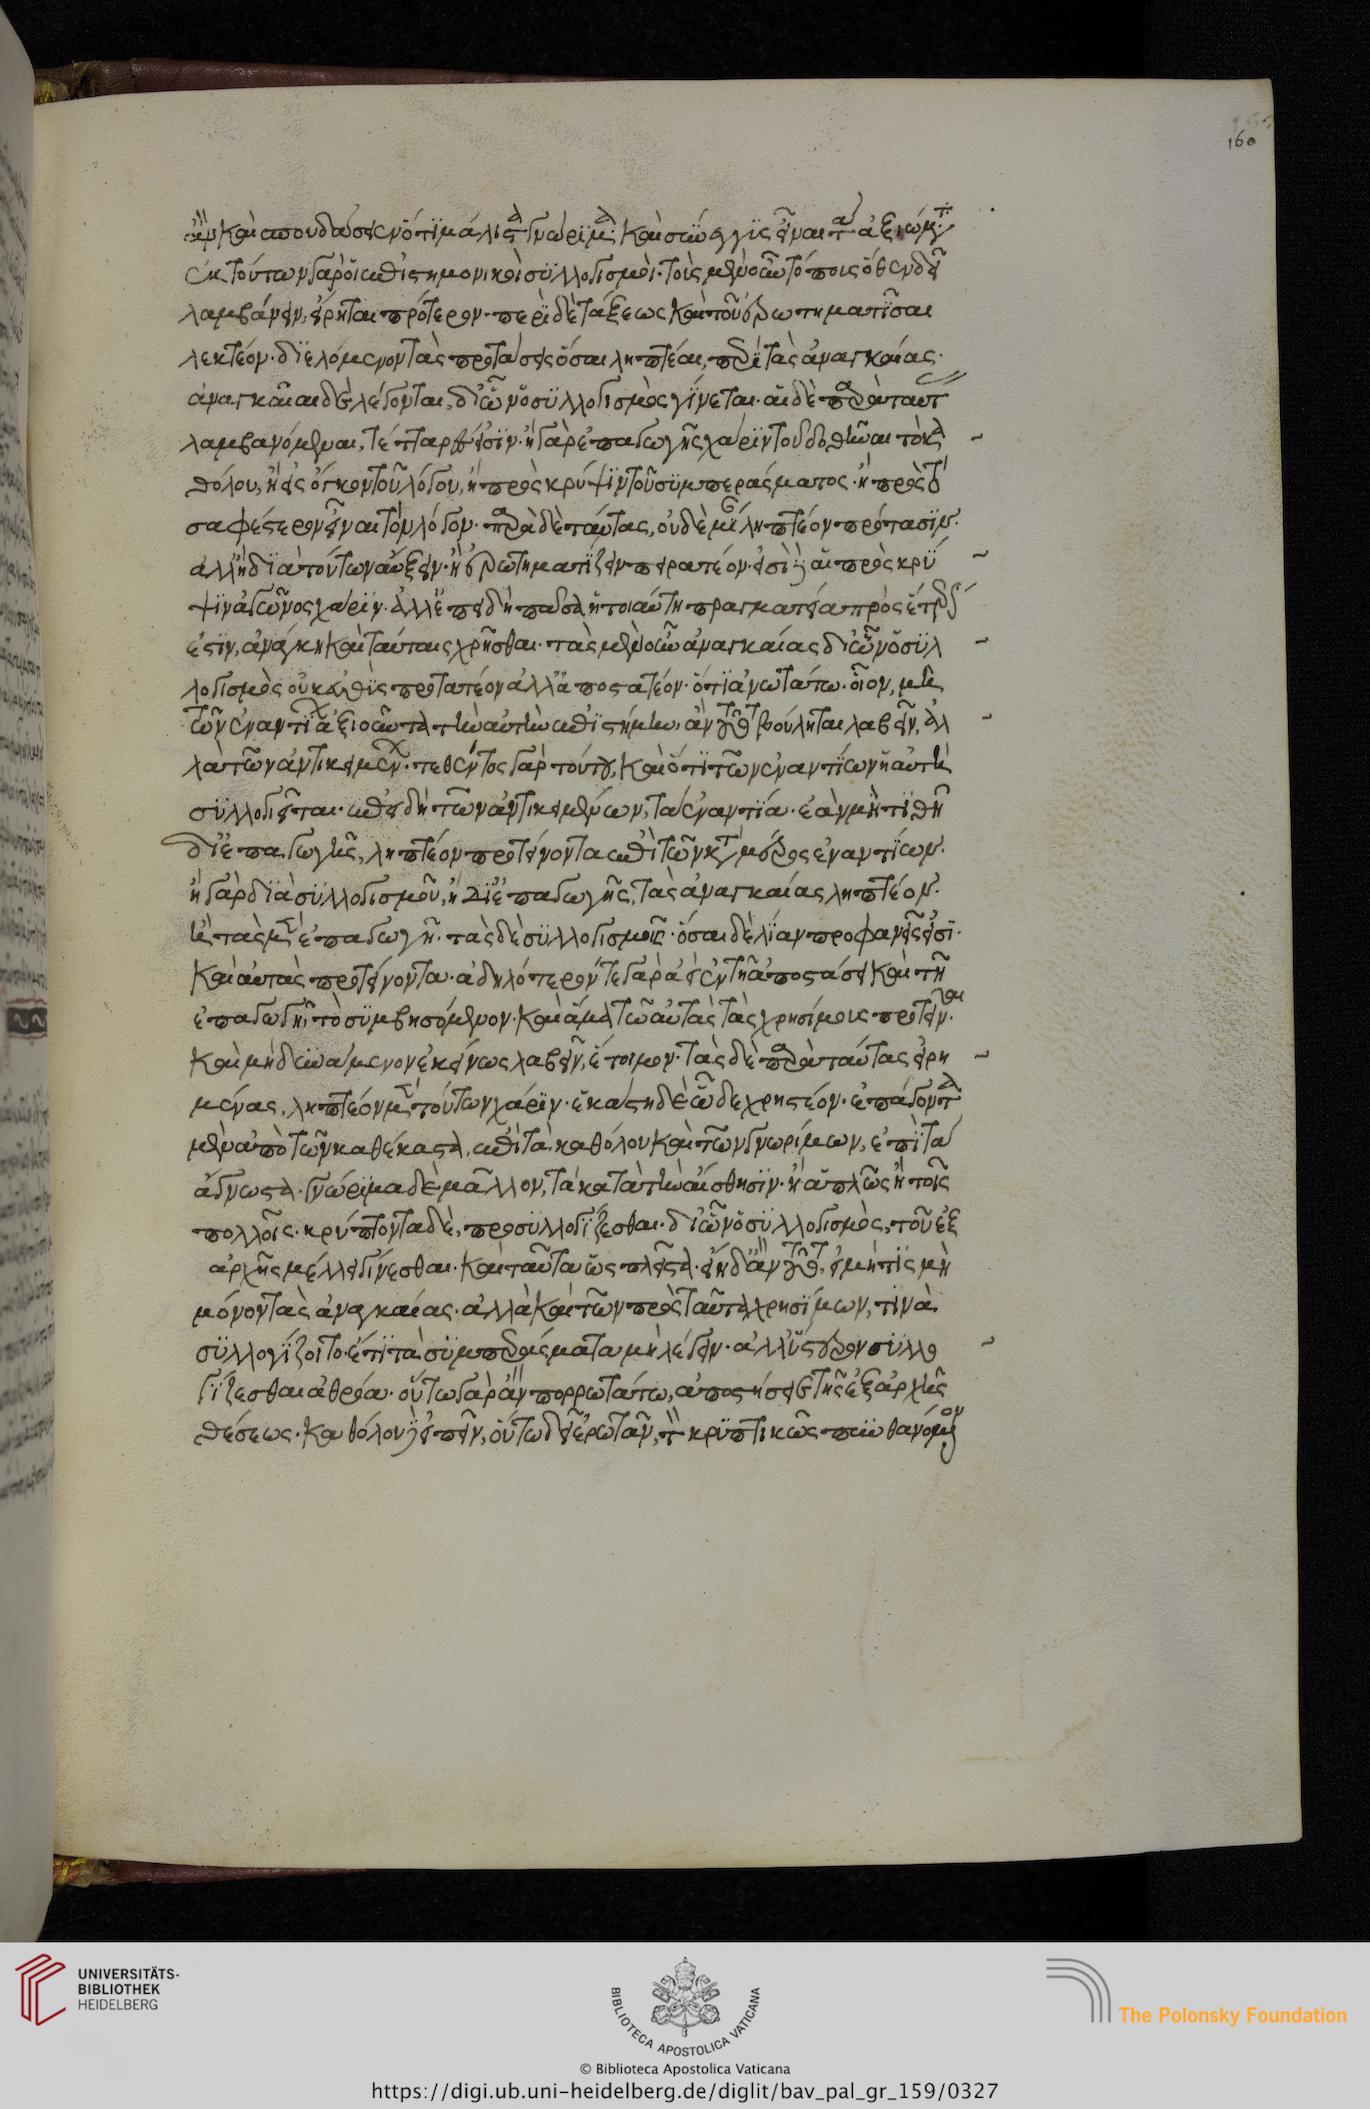 ἂν καὶ σπουδάσειεν ὅτι μάλιστα γνώριμα καὶ σύνεγγυς εἶναι τὰ ἀξιώματα
ἐκ τούτων γὰρ οἱ ἐπιστημονικοὶ συλλογισμοί· τοὺς μὲν οὖν τόποις ὅθεν δεῖ
λαμβάνειν, εἴρηται πρότερον· περὶ δὲ τάξεως καὶ τοῦ ἐρωτηματίσαι
λεκτέον· διελόμενον τὰς προτάσεις ὅσαι ληπτέαι, παρὰ τὰς ἀναγκαίας·
ἀναγκαῖαι δὲ λέγονται, δι' ὧν ὁ συλλογισμὸς γίνεται· αἱ δὲ παρὰ ταύτας
λαμβανόμεναι, τέτταρές εἰσιν· ἢ γὰρ ἐπαγωγῆς χάριν τοῦ δοθῆναι τὸ κα
θόλου, ἢ εἰς ὄγκον τοῦ λόγου, ἢ πρὸς κρύψιν τοῦ συμπεράσματος· ἢ πρὸς τὸ
σαφέστερον εἶναι τὸν λόγον· παρὰ δὲ ταύτας, οὐδεμίαν ληπτέον πρότασιν·
ἀλλ' ἢ διὰ τούτων αὔξειν· ἢ ἐρωτηματίζειν πειρατέον· εἰσὶ δὲ αἱ πρὸς κρύ
ψιν ἀγῶνος χάριν· ἀλλ' ἐπειδὴ πᾶσα ἡ τοιαύτη πραγματεία πρὸς ἕτερόν
ἐστιν, ἀνάγκη καὶ ταύταις χρῆσθαι· τὰς μὲν οὖν ἀναγκαίας δι' ὧν ὁ συλ
λογισμὸς οὐκ εὐθὺς προτατέον ἀλλ' ἀποστατέον· ὅτι ἀνωτάτω· οἷον, μὴ
τῶν ἐναντίων ἀξιοῦντα τὴν αὐτὴν ἐπιστήμην, ἂν τοῦτο βούληται λαβεῖν, ἀλ
λὰ τῶν ἀντικειμένων· τεθέντος γὰρ τούτου, καὶ ὅτι τῶν ἐναντίων ἡ αὐτὴ
συλλογιεῖται· ἐπειδὴ τῶν ἀντικειμένων, τὰ ἐναντία· ἐὰν μὴ τιθῇ
δι' ἐπαγωγῆς, ληπτέον προτείνοντα ἐπὶ τῶν κατὰ μέρος ἐναντίων·
ἢ γὰρ διὰ συλλογισμοῦ, ἢ δι' ἐπαγωγῆς, τὰς ἀναγκαίας ληπτέον·
ἢ τὰς μὲν ἐπαγωγῇ· τὰς δὲ συλλογισμοῖς· ὅσαι δὲ λίαν προφανεῖς εἰσι·
καὶ αὐτὰς προτείνοντα· ἀδηλότερόν τε γὰρ ἀεὶ ἐν τῇ ἀποστάσει καὶ τῇ
ἐπαγωγῇ, τὸ συμβησόμενον· καὶ ἅμα τῶ αὐτὰς τὰς χρησίμους προτεῖναι
καὶ μὴ δυνάμενον ἐκείνως λαβεῖν, ἕτοιμον· τὰς δὲ παρὰ ταύτας εἰρη
μένας, ληπτέον μὲν τούτων χάριν· ἑκάστῃ δὲ ὧδε χρηστέον· ἐπάγοντα
μὲν ἀπὸ τῶν καθέκαστα, ἐπὶ τὰ καθόλου καὶ τῶν γνωρίμων, ἐπὶ τὰ
ἄγνωστα· γνώριμα δὲ μᾶλλον, τὰ κατὰ τὴν αἴσθησιν· ἢ ἁπλῶς ἢ τοῖς
πολλοῖς· κρύπτοντα δὲ, προσυλλογίζεσθαι· δι' ὧν ὁ συλλογισμὸς, τοῦ ἐξ
ἀρχῆς μέλλει γίνεσθαι· καὶ ταῦτα ὡς πλεῖστα· εἴη δ' ἂν τοῦτο, εἰ μή τις μὴ
μόνον τὰς ἀναγκαίας· ἀλλὰ καὶ τῶν πρὸς ταῦτα χρησίμων, τινὰ
συλλογίζοιτο· ἔτι τὰ συμπεράσματα μὴ λέγειν· ἀλλ' ὕστερον συλλο
γίζεσθαι ἀθρόα· οὕτω γὰρ ἂν πορρωτάτω, ἀποστήσειε τῆς ἐξ ἀρχῆς
θέσεως· καθόλου δὲ εἰπεῖν, οὕτω δεῖ ἐρωτᾶν, τὸν κρυπτικῶς πυνθανόμενον
160
UNIVERSITÄTS-
BIBLIOTHEK
HEIDELBERG
BIBLIOTECA APOSTOLICA VATICANA
The Polonsky Foundation
© Biblioteca Apostolica Vaticana
https://digi.ub.uni-heidelberg.de/diglit/bav_pal_gr_159/0327